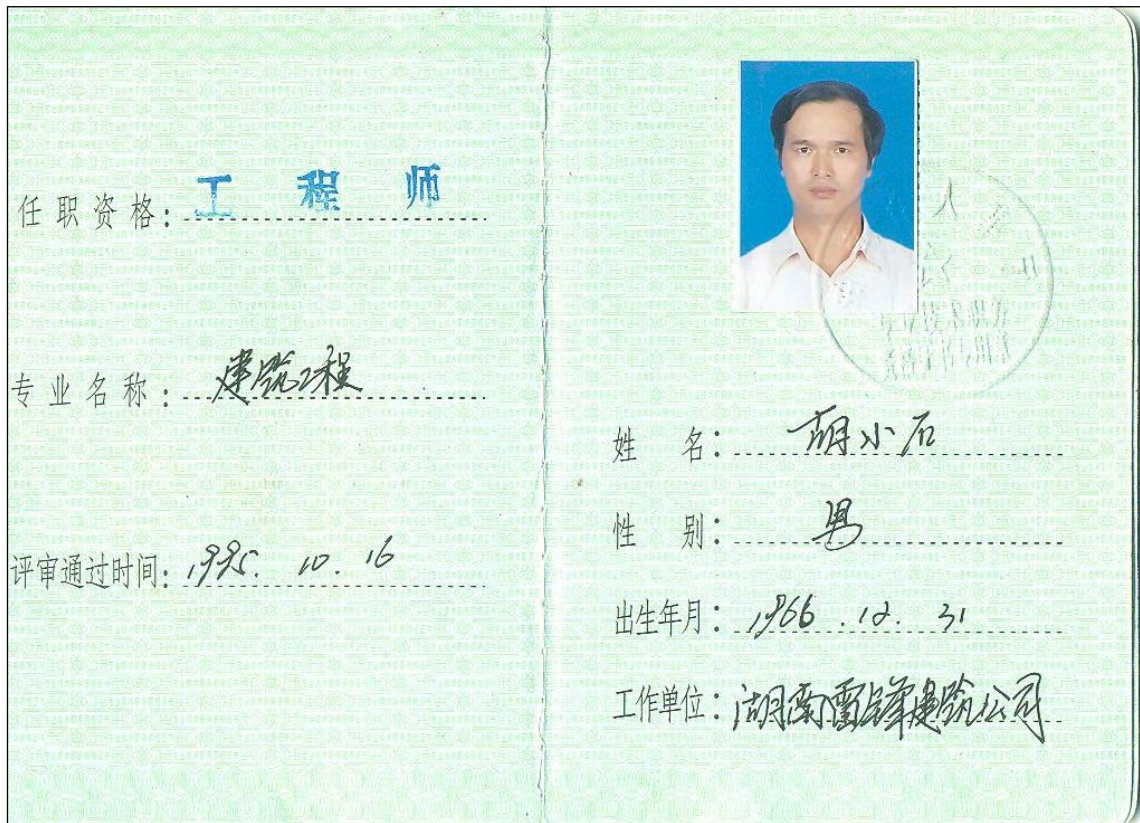 任职资格：工程师
专业名称：建筑工程
评审通过时间：1995. 10. 16
姓名：胡小石
性别：男
出生年月：1966. 12. 31
工作单位：湖南雷锋建筑公司
专业技术职务